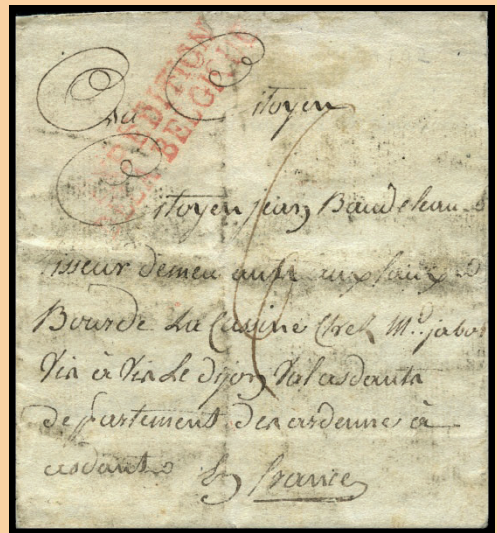 EXPEDITION
BELGIQUE
Au Citoyen
Citoyen jean Baudeleau
tisseur demeurant aux faux
Bourde La Cassine Chez Md. jabo
Vis à Vis Le dijon Val asdants
departement des ardennes à
asdants En france